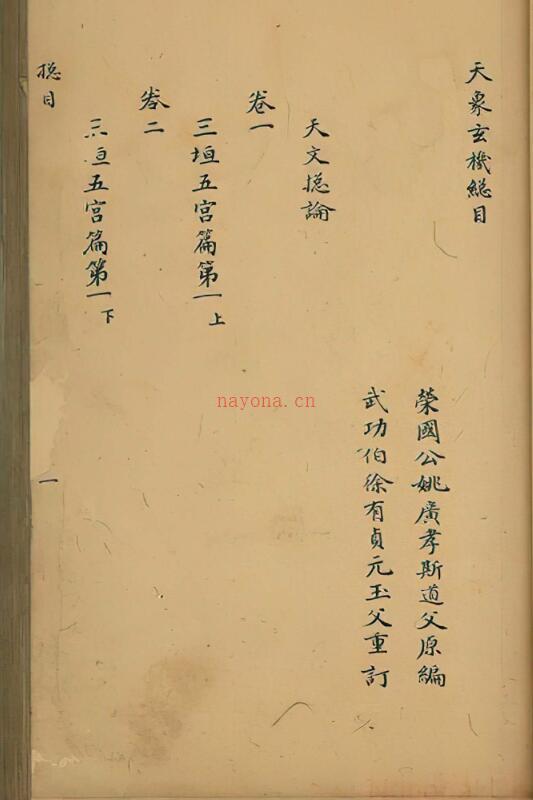 天象玄機總目
榮國公姚廣孝斯道父原編
武功伯徐有貞元玉父重訂
天文揔論
卷一
三垣五宮篇第一上
卷二
三垣五宮篇第一下
揔目
一
nayona.cn